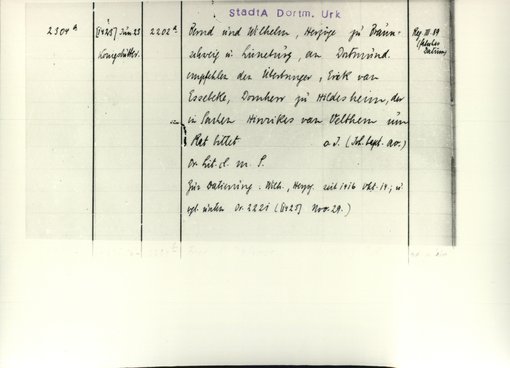 StadtA Dortm. Urk
2304a [1425] Juni 23 2202a Bernd und Wilhelm, Herzöge zu Braun-
Königslutter. schweig u. Lüneburg, an Dortmund:
empfehlen den Überbringer, Erik van
Esselcke, Domherr zu Hildesheim, der
in Sachen Hinrikes van Velthem um
Rat bittet o. J. (Joh. bapt. av.)
Or. Lit. c. m. S.
Zur Datierung: Wilh., Herzog seit 1416 Okt. 14; u
vgl. unten Or. 2221 ([1425] Nov. 29.)
Reg. III. 89